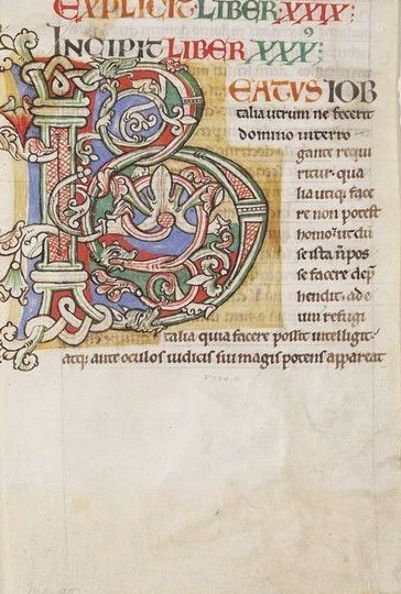 EXPLICIT LIBER XXIX;
INCIPIT LIBER XXX⁹;
BEATVS IOB
talia utrum ne fecerit
domino interro
gante requi
ritur. qua
lia utiq; face
re non potest
homo. ut dū
se ista n̄ pos
se facere dep̄
hendit. ad e
um refugi
talia quia facere possit intelligit.
atq; ante oculos iudicis sui magis potens appareat